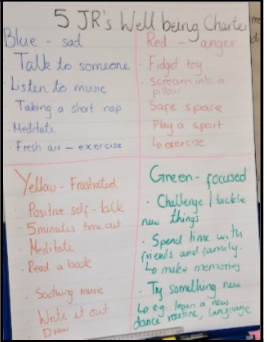 5 JR's Wellbeing Charter
Blue - sad
Talk to someone
Listen to music
Taking a short nap
Meditate
Fresh air - exercise
Red - anger
Fidget toy
Scream into a
pillow.
Safe space
Play a sport
↳ exercise
Yellow - Frustrated
Positive self-talk
5 minutes time out
Meditate
Read a book
Soothing music
Write it out
Draw
Green - focused
Challenge / tackle
new things
Spend time with
friends and family.
↳ make memories
Try something new
↳ e.g. learn a new
dance routine, language